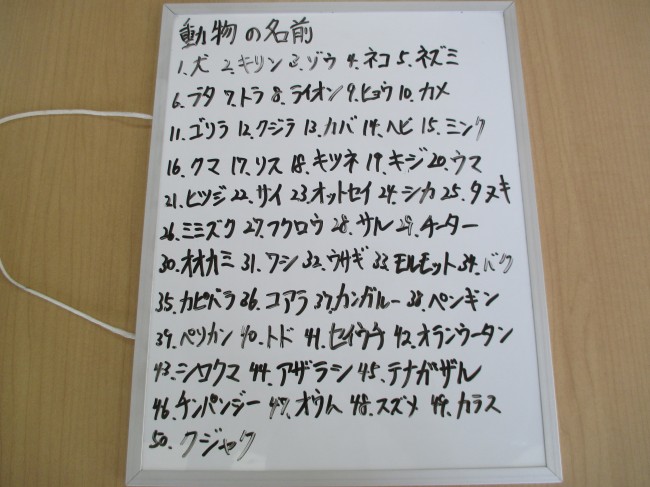 動物の名前
1.犬 2.キリン 3.ゾウ 4.ネコ 5.ネズミ
6.ブタ 7.トラ 8.ライオン 9.ヒョウ 10.カメ
11.ゴリラ 12.クジラ 13.カバ 14.ヘビ 15.ミンク
16.クマ 17.リス 18.キツネ 19.キジ 20.ウマ
21.ヒツジ 22.サイ 23.オットセイ 24.シカ 25.タヌキ
26.ミミズク 27.フクロウ 28.サル 29.チーター
30.オオカミ 31.ワシ 32.ウサギ 33.モルモット 34.バク
35.カピバラ 36.コアラ 37.カンガルー 38.ペンギン
39.ペリカン 40.トド 41.セイウチ 42.オランウータン
43.シロクマ 44.アザラシ 45.テナガザル
46.チンパンジー 47.オウム 48.スズメ 49.カラス
50.クジャク